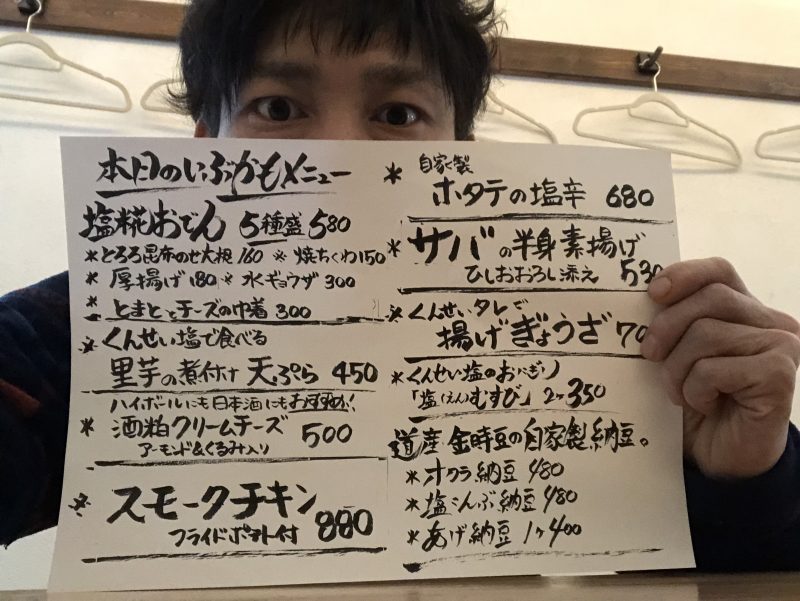 本日のいぶかもメニュー
塩糀おでん 5種盛580
*とろろ昆布のせ大根160 *焼ちくわ150
*厚揚げ180 *水ギョウザ300
*とまととチーズの巾着 300
*くんせい塩で食べる
里芋の煮付け天ぷら 450
ハイボールにも日本酒にもおすすめ!
*酒粕クリームチーズ 500
アーモンド&くるみ入り
*スモークチキン
フライドポテト付 880
*自家製
ホタテの塩辛 680
*サバの半身素揚げ
ひしおおろし添え 530
*くんせいタレで
揚げぎょうざ 70
*くんせい塩のおにぎり
「塩(えん)むすび」2ヶ350
道産 金時豆の自家製納豆。
*オクラ納豆 480
*塩こんぶ納豆 480
*あげ納豆 1ヶ400